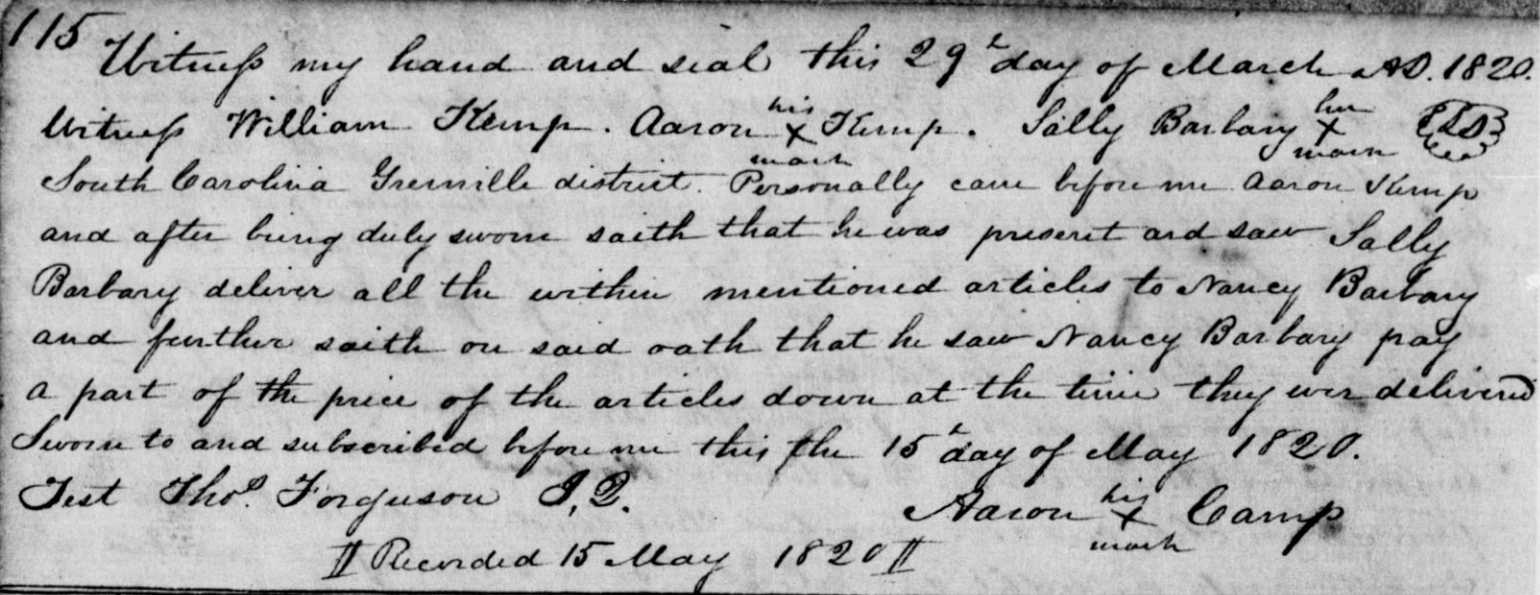 115 Witness my hand and seal this 29th day of March AD. 1820.
Witness William Kemp. Aaron his x mark Kemp. Sally Barbary her x mark LS
South Carolina Grenville district. Personally came before me Aaron Kemp
and after being duly sworn saith that he was present and saw Sally
Barbary deliver all the within mentioned articles to Nancy Barbary
and further saith on said oath that he saw Nancy Barbary pay
a part of the price of the articles down at the time they wer delivered
Sworn to and subscribed before me this the 15th day of May 1820.
Test Thos. Forguson J.Q. Aaron his x mark Camp
|| Recorded 15 May 1820 ||